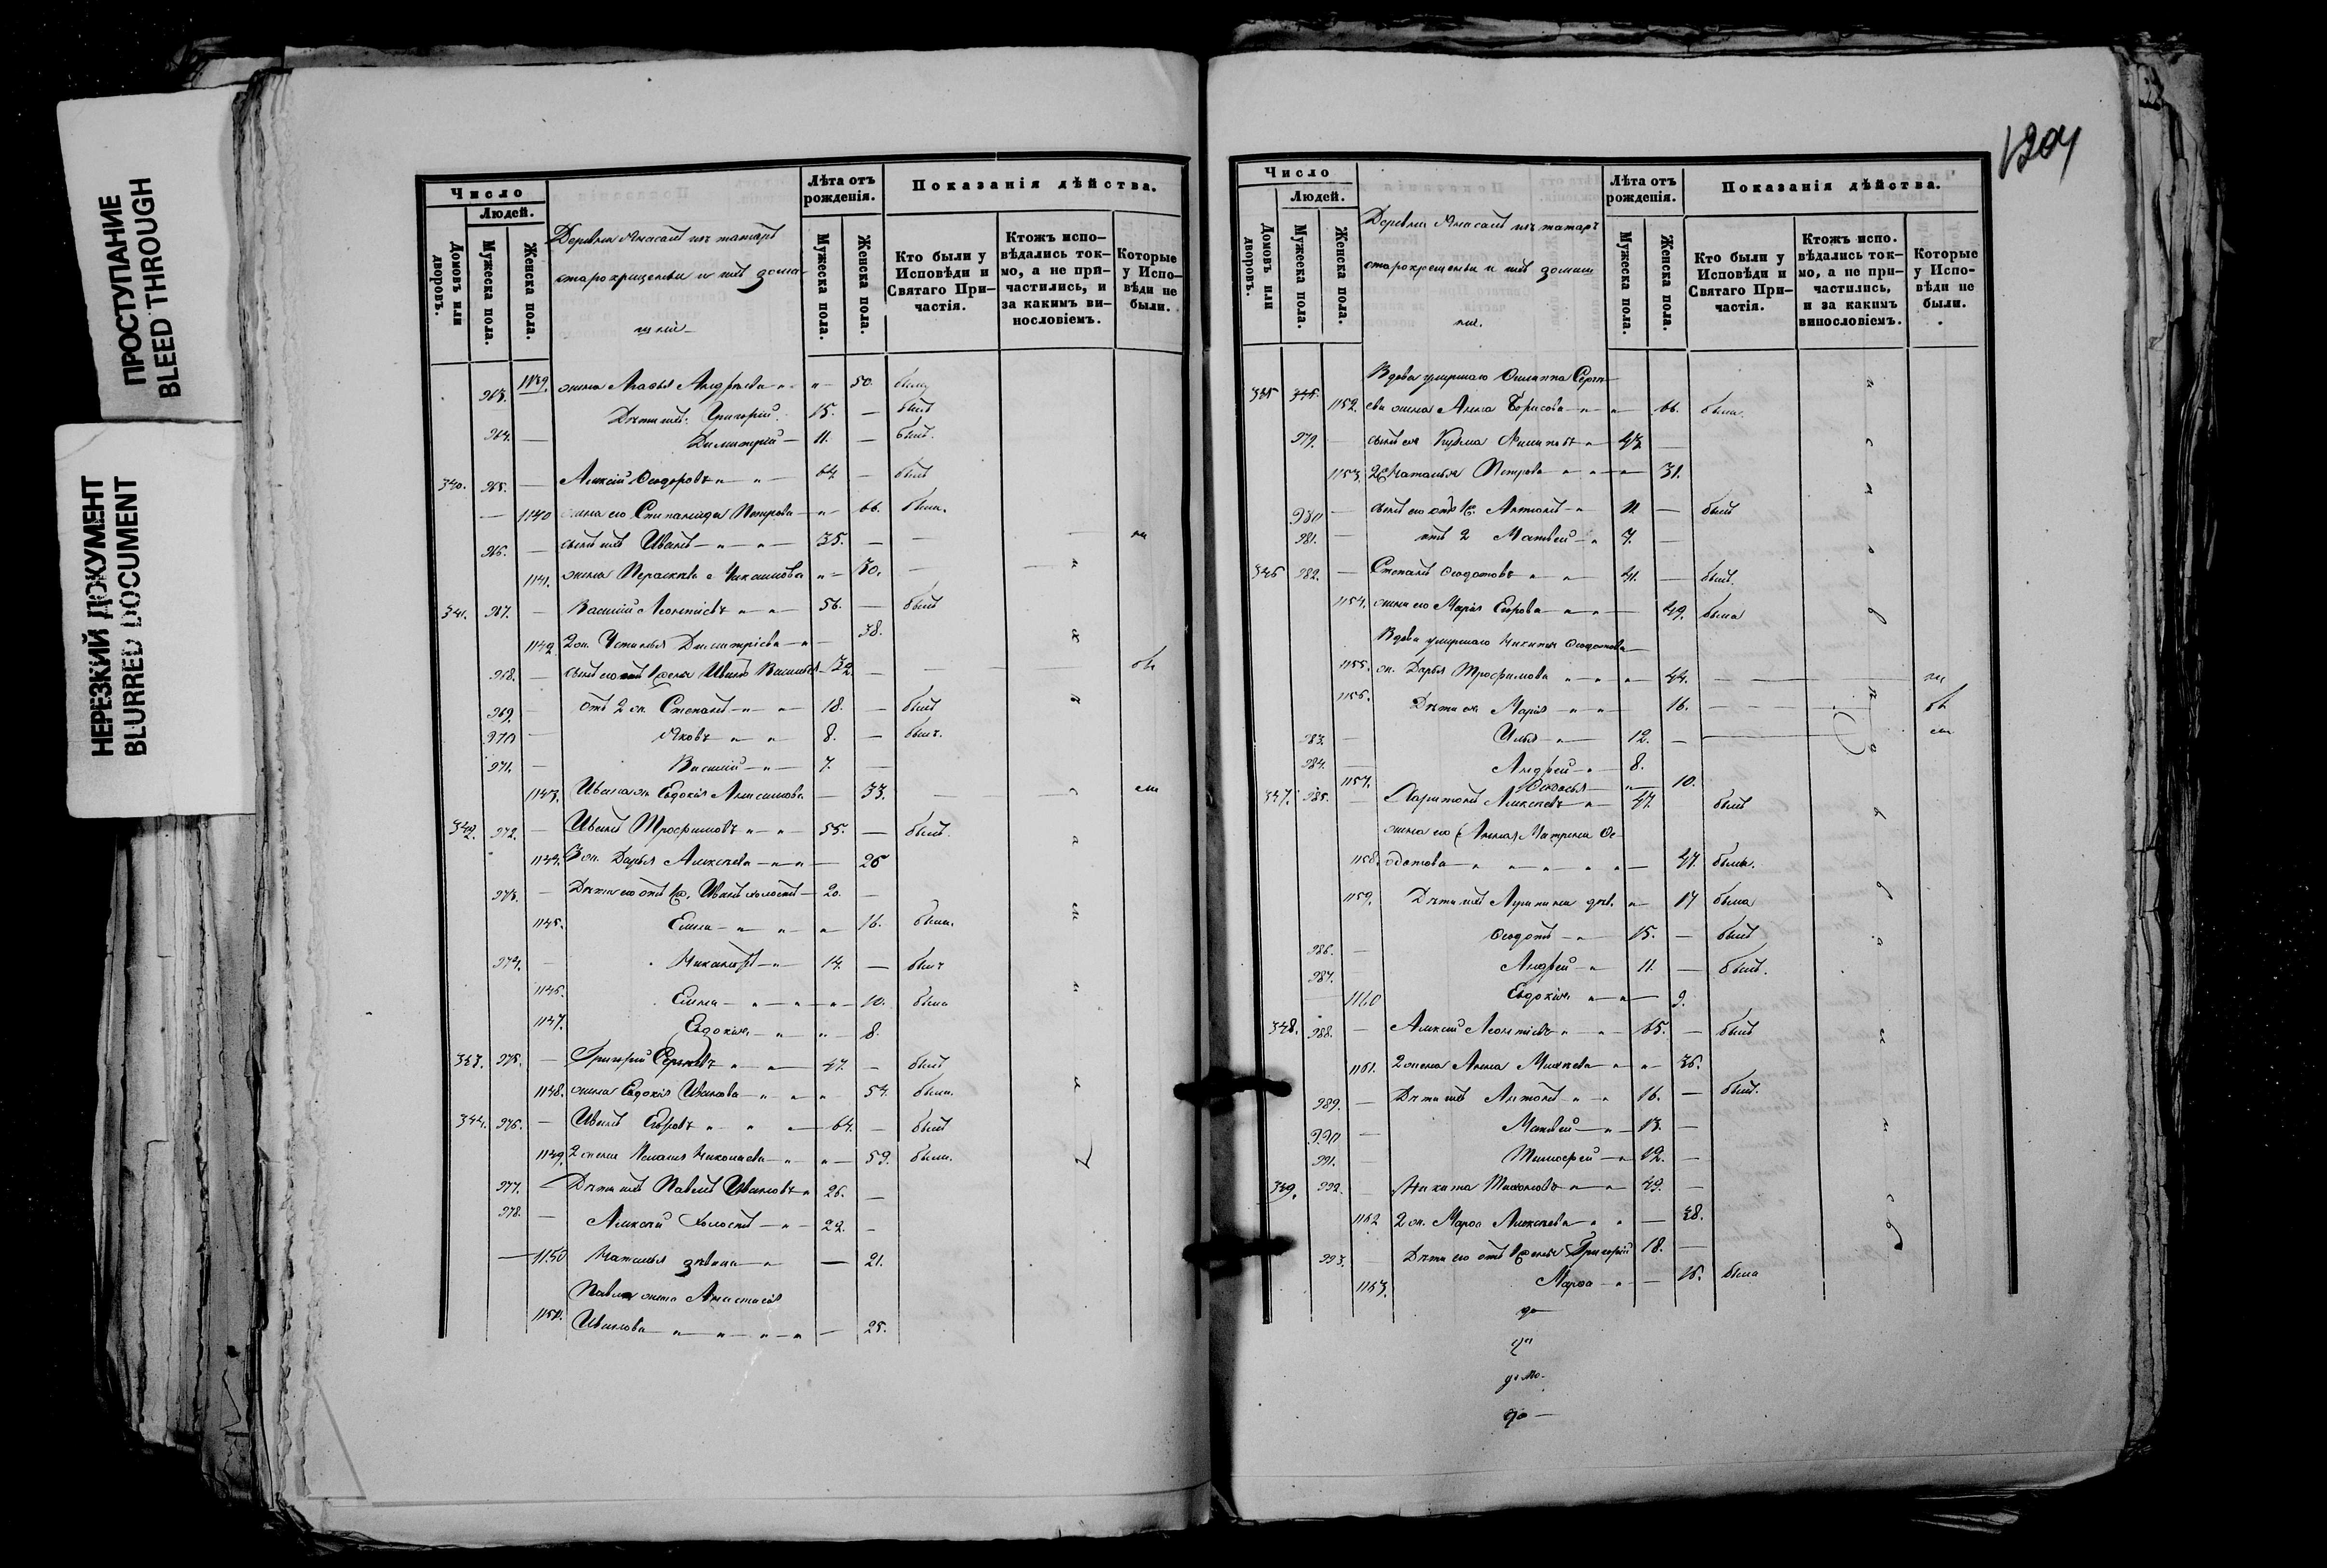 ПРОСТУПАНИЕ
BLEED THROUGH
НЕРЕЗКИЙ ДОКУМЕНТ
BLURRED DOCUMENT
Число
Людей.
Домовъ или дворовъ.
Мужеска пола.
Женска пола.
Деревни изъ татаръ
старокрещены и ихъ дома-
шніи
Лѣта отъ рожденія.
Мужеска пола.
Женска пола.
Показанія дѣйства.
Кто были у Исповѣди и Святаго При-частія.
Ктожъ испо-вѣдались ток-мо, а не при-частились, и за какимъ ви-нословіемъ.
Которые у Испо-вѣди не были.
1139. жена Андреева 50. была
963. Дѣти ихъ Григорій 15. — былъ
964. — Димитрій 11. — былъ.
340. 965. — Алексій Ѳеодоровъ 64 — былъ
— 1140 жена его Степанида Петрова 66. была.
966. — сынъ ихъ Иванъ 35. —
1141. жена Параскева 30. —
341. 967. — Василій Леонтіевъ 56. — былъ
1142 2 ж. Устинья Димитріева 38.
968. — сынъ его Иванъ Васильевъ 32 —
969. отъ 2 ж. Степанъ 18. — былъ
970 — Яковъ 8. — былъ.
971. — Василій 7. —
1143. Ивана ж. Евдокія Анисимова — 33.
342. 972. — Иванъ Трофимовъ 55. — былъ.
1144. 3 ж. Дарья Алексѣева 26
973. — Дѣти его отъ Иванъ холостъ 20. —
1145. Елена 16. была.
974. — Никаноръ 14. — былъ
1146. Елена 10. была
1147. Евдокія 8.
343. 975. — Григорій Сергѣевъ 47. — былъ
1148. жена Евдокія Иванова 54. была.
344. 976. — Иванъ Егоровъ 64. — былъ
1149. 2 жена Николаева 59. была.
977. — Дѣти ихъ Павелъ Ивановъ 26. —
978. — Алексѣй холостъ 22. —
— 1150 Наталья дѣвица — 21.
Павла жена Анастасія
1151. Иванова — 25.
1204
Число
Людей.
Домовъ или дворовъ.
Мужеска пола.
Женска пола.
Деревни изъ татаръ
старокрещены и ихъ домаш
ніи.
Лѣта отъ рожденія.
Мужеска пола.
Женска пола.
Показанія дѣйства.
Кто были у Исповѣди и Святаго При-частія.
Ктожъ испо.вѣдались ток-мо, а не при-частились, и за какимъ винословіемъ.
Которые у Испо-вѣди не были.
Вдова умершаго Филиппа Сергѣ-
345 1152. ева жена Анна Борисова 66. была.
979. — сынъ ея Кузма Филиповъ 43 —
1153. 2 ж Наталья Петрова 31.
980 — сынъ его отъ Антонъ 11 — былъ
981. — отъ 2 Матвей 7. —
346 982. — Степанъ Ѳедотовъ 41. — былъ.
1154. жена его Марія Егорова 49. была
Вдова умершаго Никиты Ѳедотова
1155. ж. Дарья Трофимова 44.
1156. Дѣти ея Марія 16.
983. — Илья 12. —
984. — Андрей 8.
1157. Ѳеодосья 10.
347. 985. — Харитонъ Алексѣевъ 47. былъ
жена его Матрена Ѳе-
1158. одотова 47. была.
1159. Дѣти ихъ дѣв. 17 была
986. — Ѳедотъ 15. — былъ
987. Андрей 11. — былъ.
1160 Евдокія 9.
348. 988. — Алексій Леонтіевъ 65. — былъ
1161. 2 жена Анна 36.
989. — Дѣти ихъ Антонъ 16. — былъ.
990 — Матвей 13. —
991. — Тимофей 12. —
349. 992. — Никита Тихоновъ 49. —
1162 2 ж. Марѳа Алексѣева — 38.
993. — Дѣти его отъ Григорій 18. —
1163. Марѳа — 16. была